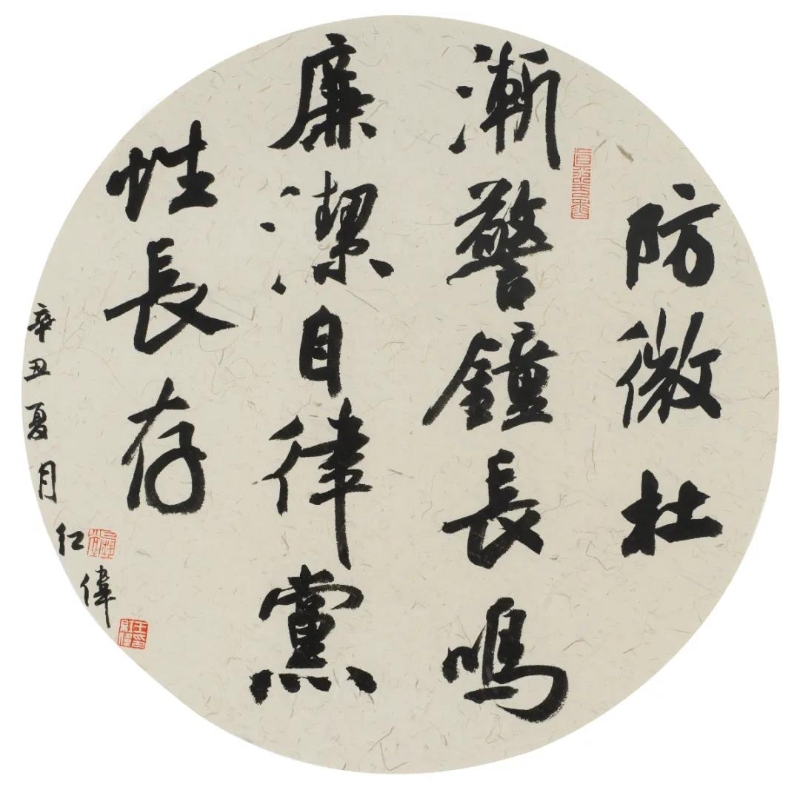 防微杜
漸警鐘長鳴
廉潔自律黨
性長存
辛丑夏月红偉